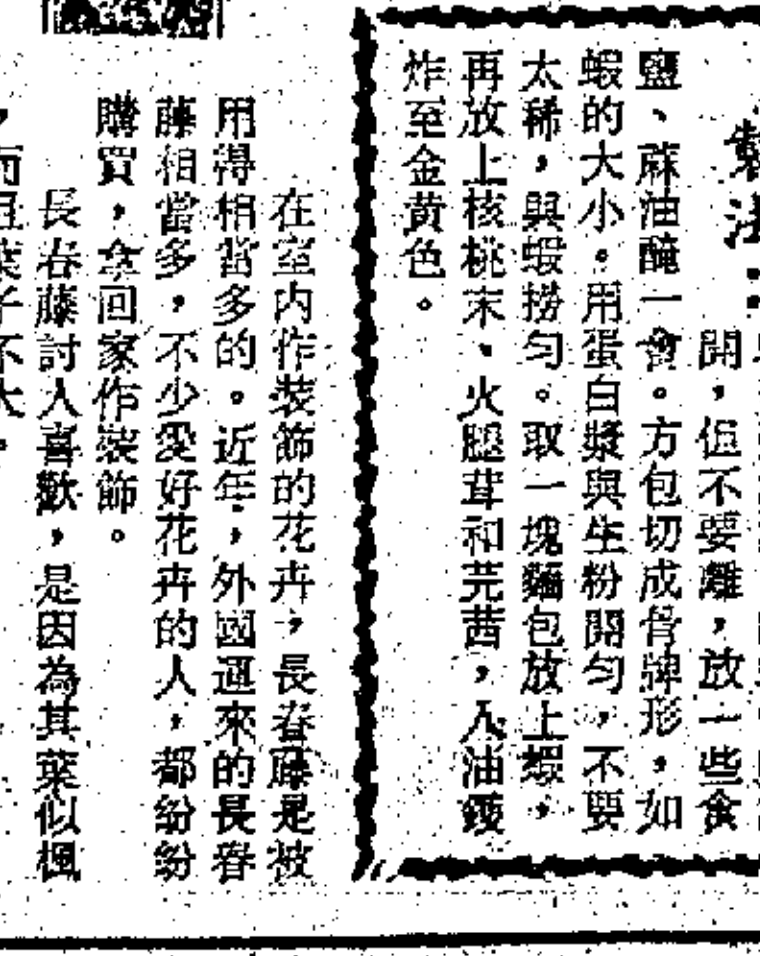 製法：
開，但不要離，放一些食
鹽、蔴油醃一會。方包切成骨牌形，如
蝦的大小。用蛋白漿與生粉開勻，不要
太稀，與蝦撈勻。取一塊麵包放上蝦，
再放上核桃末、火腿茸和芫茜，入油鑊
炸至金黄色。
在室内作裝飾的花卉，長春藤是被
用得相當多的。近年，外國運來的長春
藤相當多，不少愛好花卉的人，都紛紛
購買，拿回家作裝飾。
長春藤討人喜歡，是因為其葉似楓
，而且葉子不大，